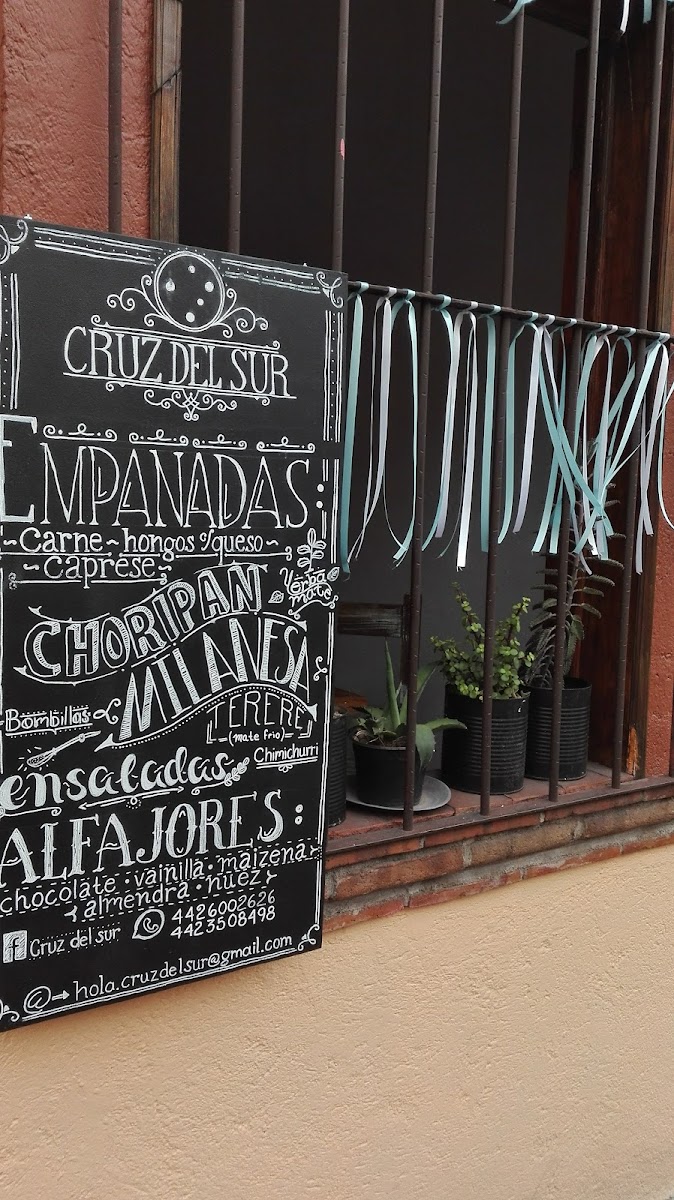 CRUZ DEL SUR
EMPANADAS:
~carne~hongos c/queso~
~caprese~
Yerba
mate
CHORIPAN
MILANESA
Bombillas
TERERE
(mate frio)
Chimichurri
ensaladas
ALFAJORES:
chocolate · vainilla · maizena
almendra · nuez
f Cruz del sur
4426002626
4423508498
@→hola.cruzdelsur@gmail.com